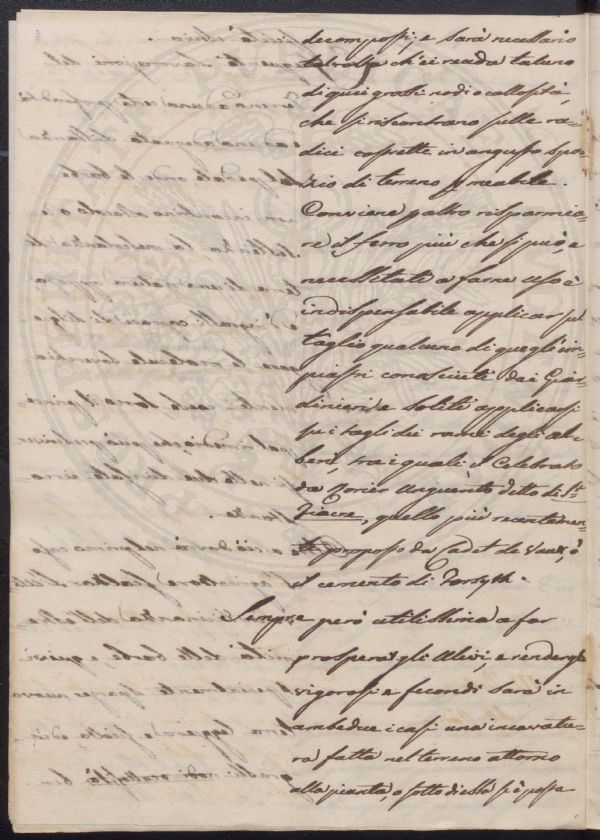 decomposti; e sarà necessario
talvolta ch'ei recida taluno
di quei grossi nodi o callosità,
che si riscontrano sulle ra-
dici costrette in angusto spa-
zio di terreno permeabile.
Conviene peraltro risparmia-
re il ferro più che si può, e
necessitati a farne uso è
indispensabile applicar sul
taglio qualcuno di quegli im-
piastri conosciuti dai Giar-
dinieri e soliti applicarsi
su i tagli dei rami degli al-
beri, tra i quali è celebrato
da Rozier Unguento detto di St.
Fiacre, quello più recentemen-
te proposto da Cadet de Vaux, o
il cemento di Forsyth.
Sempre però utilissima a far
prosperar gli Ulivi, e rendergli
vigorosi e fecondi sarà in
ambedue i casi una incavatu-
ra fatta nel terreno attorno
alla pianta, o sotto di essa si è posse